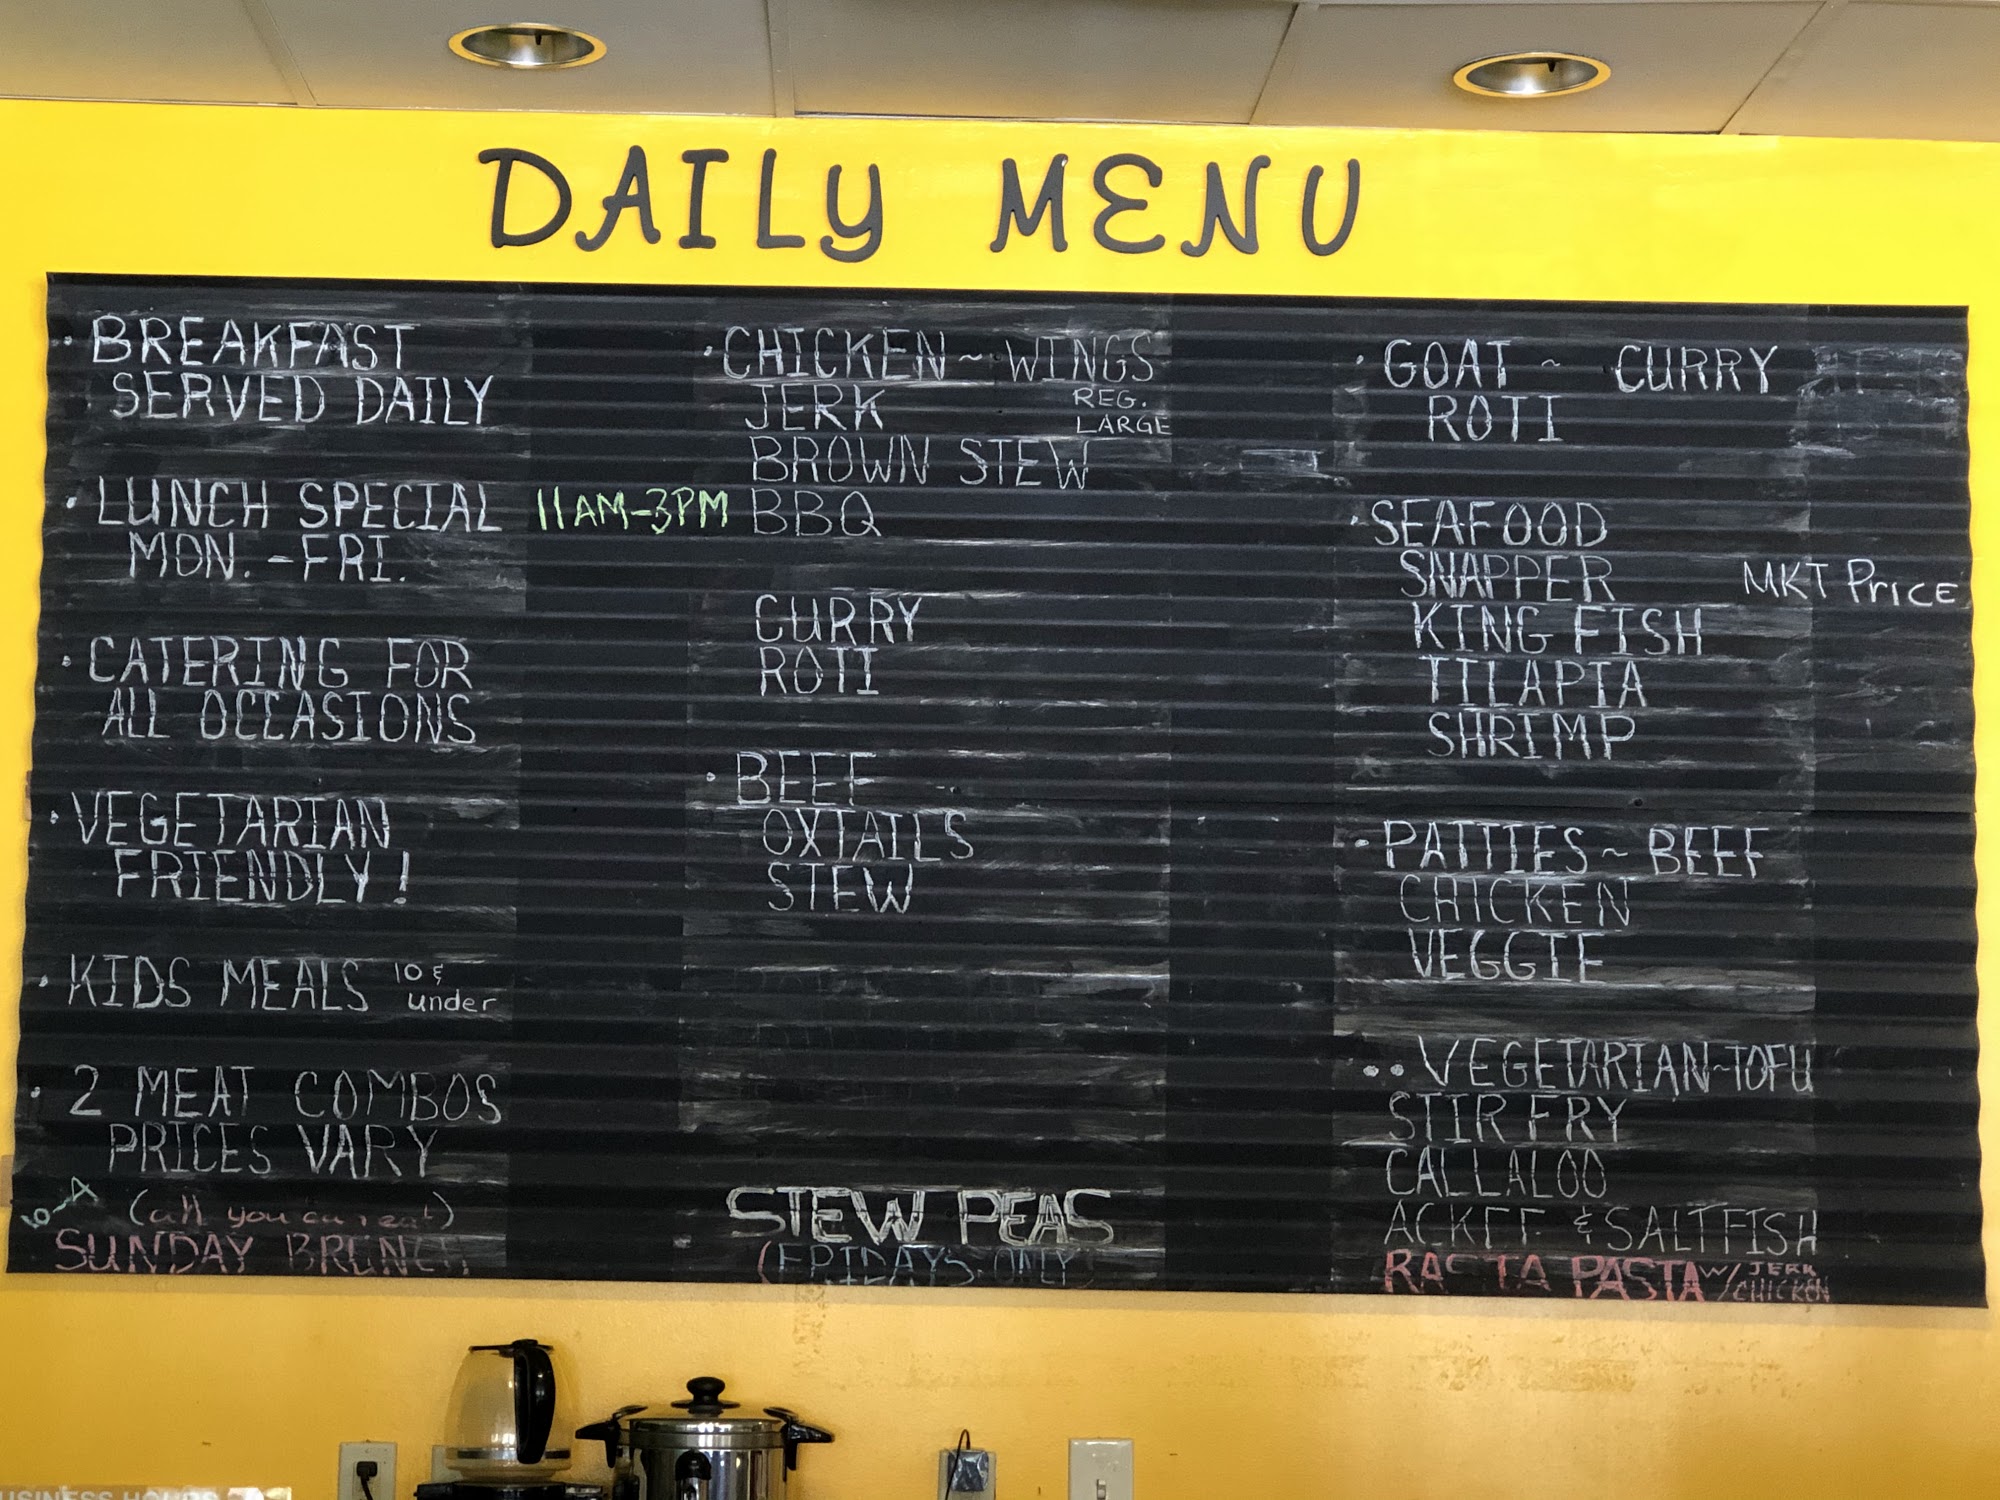 DAILY MENU
· BREAKFAST
SERVED DAILY
· LUNCH SPECIAL 11AM-3PM
MON. - FRI.
· CATERING FOR
ALL OCCASIONS
· VEGETARIAN
FRIENDLY!
· KIDS MEALS 10 &
under
· 2 MEAT COMBOS
PRICES VARY
(all you can eat)
SUNDAY BRUNCH
· CHICKEN ~ WINGS
JERK REG.
LARGE
BROWN STEW
BBQ
CURRY
ROTI
· BEEF
OXTAILS
STEW
STEW PEAS
(FRIDAYS ONLY)
· GOAT ~ CURRY
ROTI
· SEAFOOD
SNAPPER MKT PRICE
KING FISH
TILAPIA
SHRIMP
· PATTIES ~ BEEF
CHICKEN
VEGGIE
·· VEGETARIAN ~ TOFU
STIR FRY
CALLALOO
ACKEE & SALTFISH
RASTA PASTA W/ JERK
CHICKEN
BUSINESS HOURS